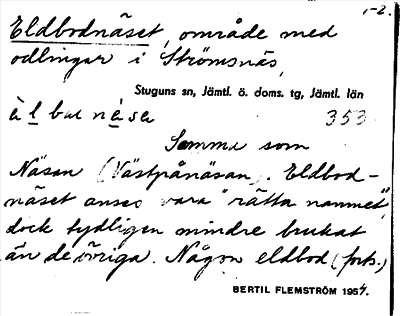 1-2.
Eldbodnäset, område med
odlingar i Strömsnäs,
Stuguns sn, Jämtl. ö. doms. tg, Jämtl. län
353
Samma som
Näsan (Västpånäsan). Eldbod-
näset anses vara "rätta namnet",
dock tydligen mindre brukat
än de övriga. Någon eldbod (forts.)
BERTIL FLEMSTRÖM 1954.